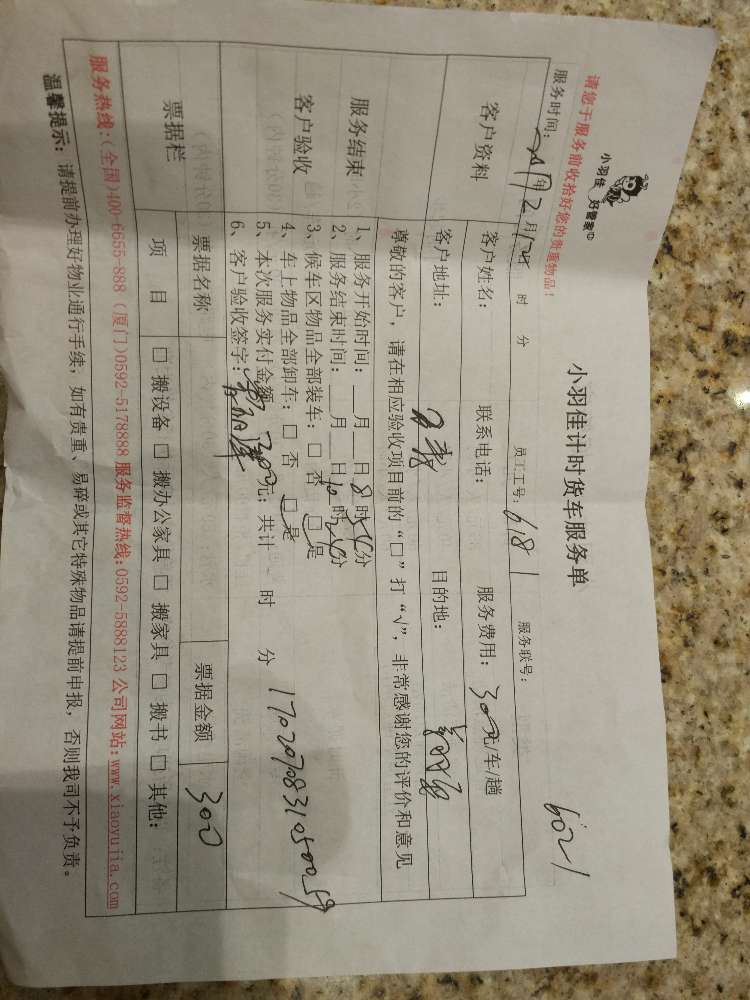 小羽佳 好管家
小羽佳计时货车服务单
6021
请您于服务前收拾好您的贵重物品！
服务时间： 年2月 时 分 员工工号：6181 服务联号：
客户资料 客户姓名： 联系电话： 服务费用：300元/车/趟
客户地址： 目的地：
尊敬的客户，请在相应验收项目前的“□”打“√”，非常感谢您的评价和意见
服务结束
客户验收
1、服务开始时间：__月__日8时54分
2、服务结束时间：__月__日10时26分
3、候车区物品全部装车：□ 否 □ 是
4、车上物品全部卸车：□ 否 □ 是
5、本次服务实付金额 300元；共计 时 分
6、客户验收签字：
1702070831050059
票据栏 票据名称 票据金额 300
项 目 □ 搬设备 □ 搬办公家具 □ 搬家具 □ 搬书 □ 其他：
服务热线:(全国)400-6655-888 (厦门)0592-5178888 服务监督热线:0592-5888123 公司网站:www.xiaoyujia.com
温馨提示：请提前办理好物业通行手续，如有贵重、易碎或其它特殊物品请提前申报，否则我司不予负责。